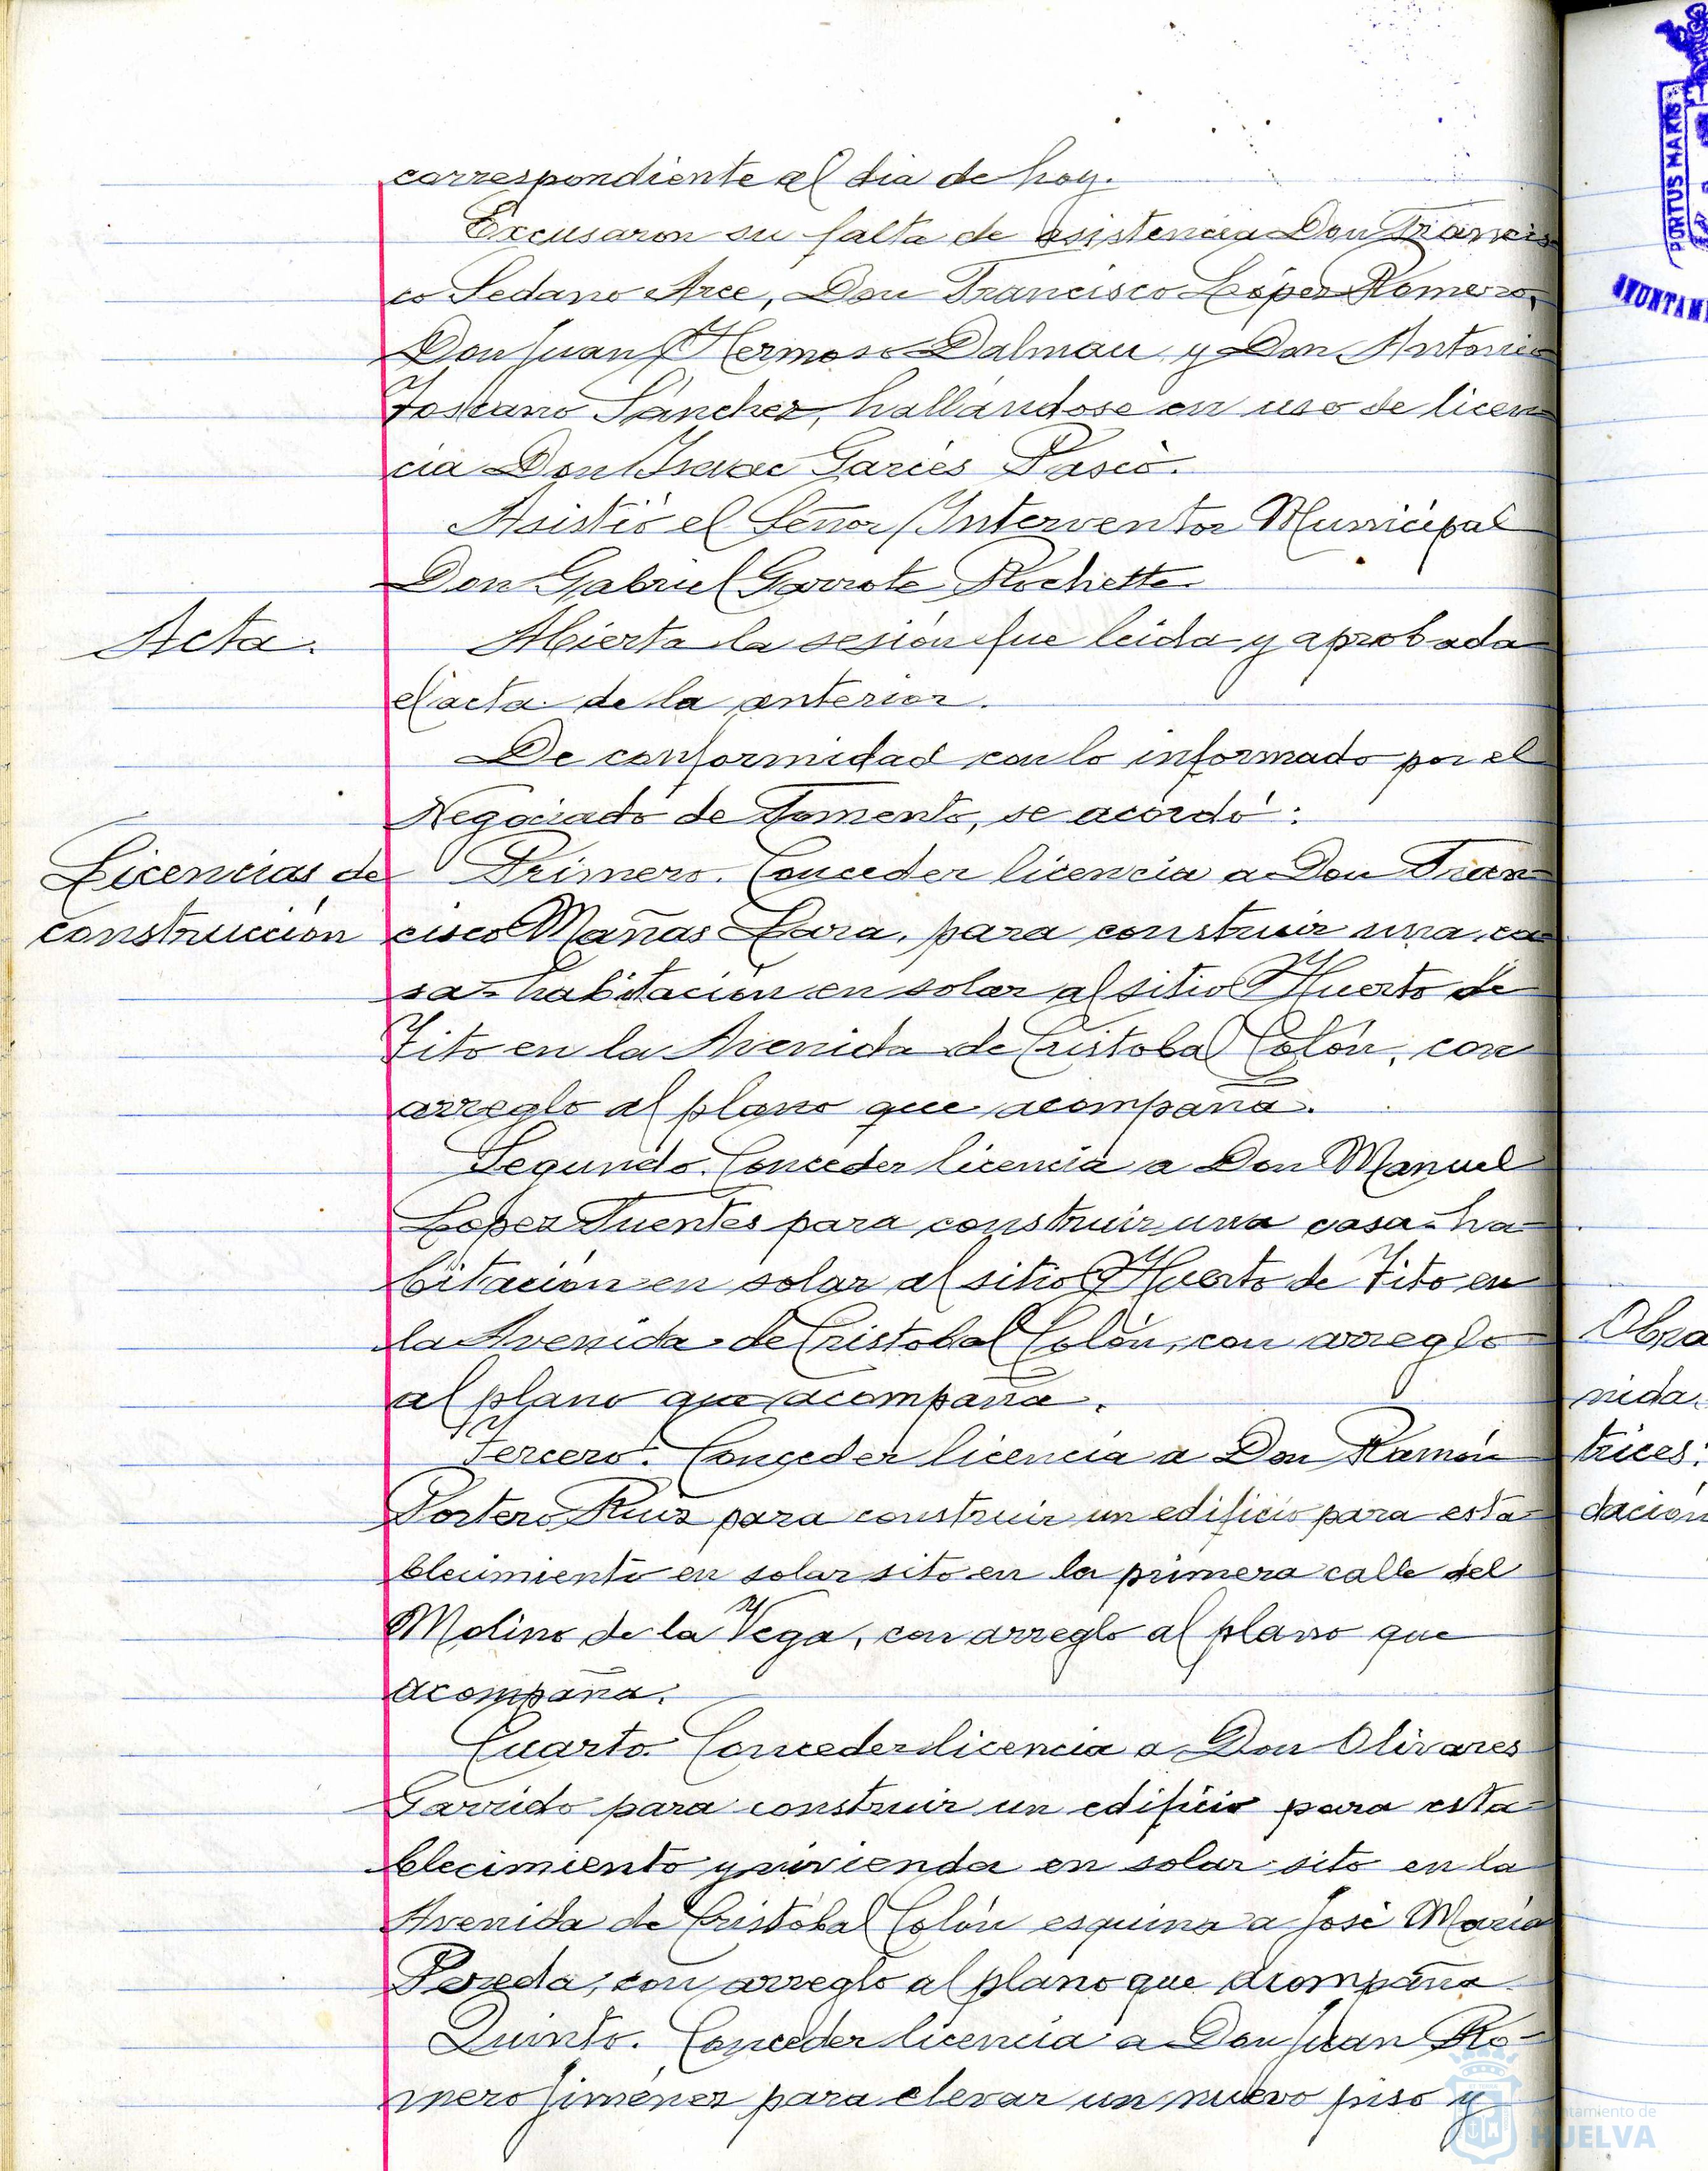 correspondiente al dia de hoy.
Excusaron su falta de asistencia Don Francis
co Sedano Arce, Don Francisco López Romero,
Don Juan Hermoso Dalmau y Don Antonio
Toscano Sánchez, hallándose en uso de licen
cia Don Isaac Garcés
Asistió el Señor Interventor Municipal
Don Gabriel Garrote Rochette.
Acta.
Abierta la sesión fue leida y aprobada
el acta de la anterior.
De conformidad con lo informado por el
Negociado de Fomento, se acordó:
Licencias de
construcción
Primero. Conceder licencia a Don Fran
cisco Mañas Lara, para construir una ca
sa-habitación en solar al sitio Huerto de
Tito en la Avenida de Cristobal Colón, con
arreglo al plano que acompaña.
Segundo. Conceder licencia a Don Manuel
López Fuentes para construir una casa-ha
bitación en solar al sitio Huerto de Tito en
la Avenida de Cristobal Colón, con arreglo
al plano que acompaña.
Tercero. Conceder licencia a Don Ramón
Portero Ruiz para construir un edificio para esta
blecimiento en solar sito en la primera calle del
Molino de la Vega, con arreglo al plano que
acompaña.
Cuarto. Conceder licencia a Don Olivares
Garrido para construir un edificio para esta
blecimiento y vivienda en solar sito en la
Avenida de Cristóbal Colón esquina a José María
Pereda, con arreglo al plano que acompaña.
Quinto. Conceder licencia a Don Juan Ro-
mero Jiménez para elevar un nuevo piso y
PORTUS MARIS
AYUNTAMI
Obra
nida
trices:
dación
Ayuntamiento de
HUELVA